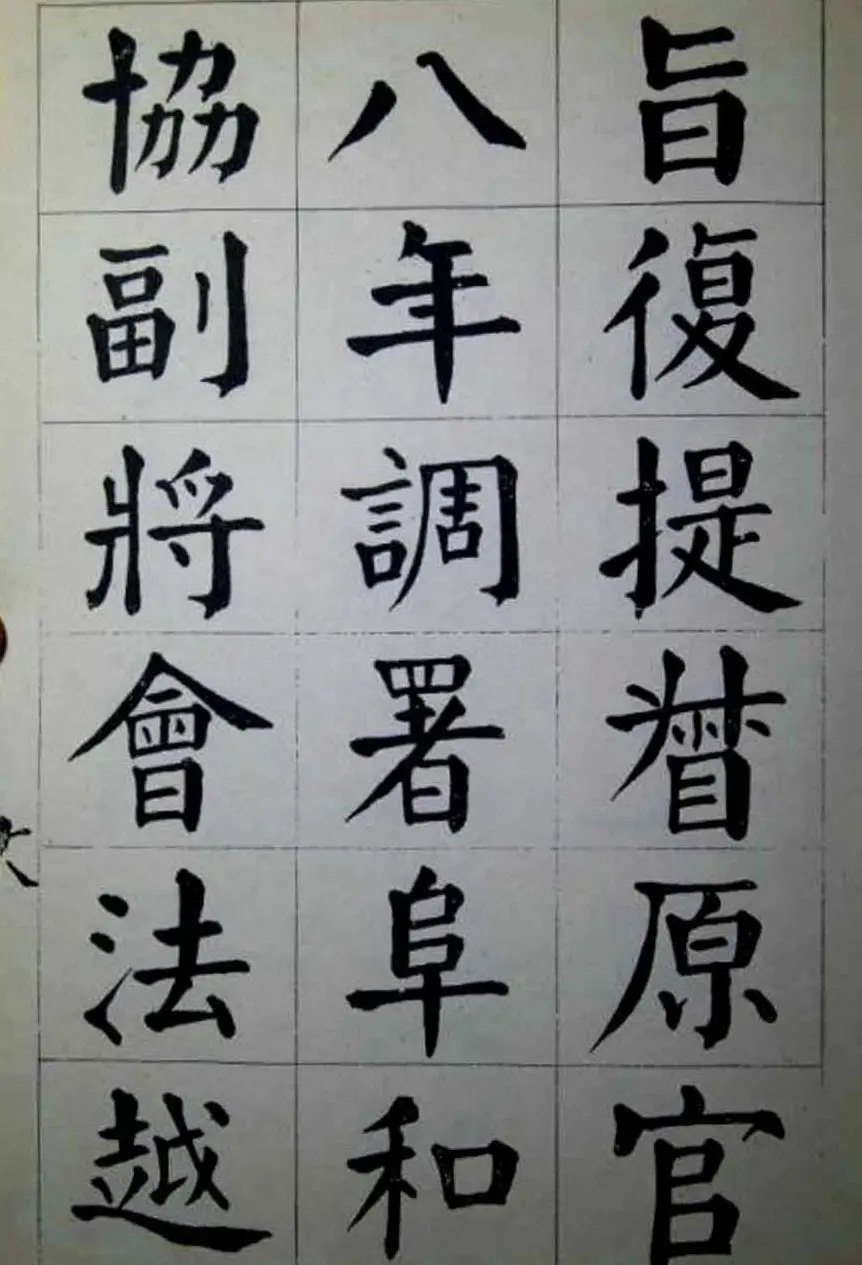 旨復提督原官
八年調署阜和
協副將會法越